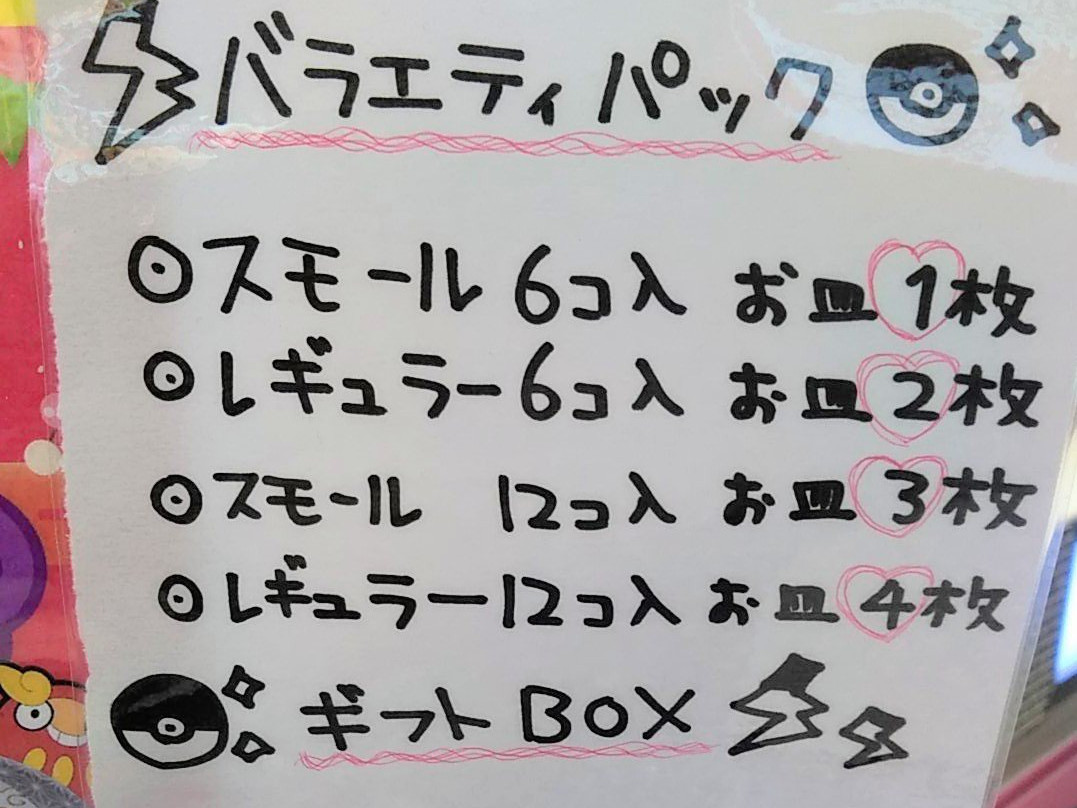 バラエティパック
◎スモール 6コ入 お皿1枚
◎レギュラー6コ入 お皿2枚
◎スモール 12コ入 お皿3枚
◎レギュラー12コ入 お皿4枚
ギフトBOX